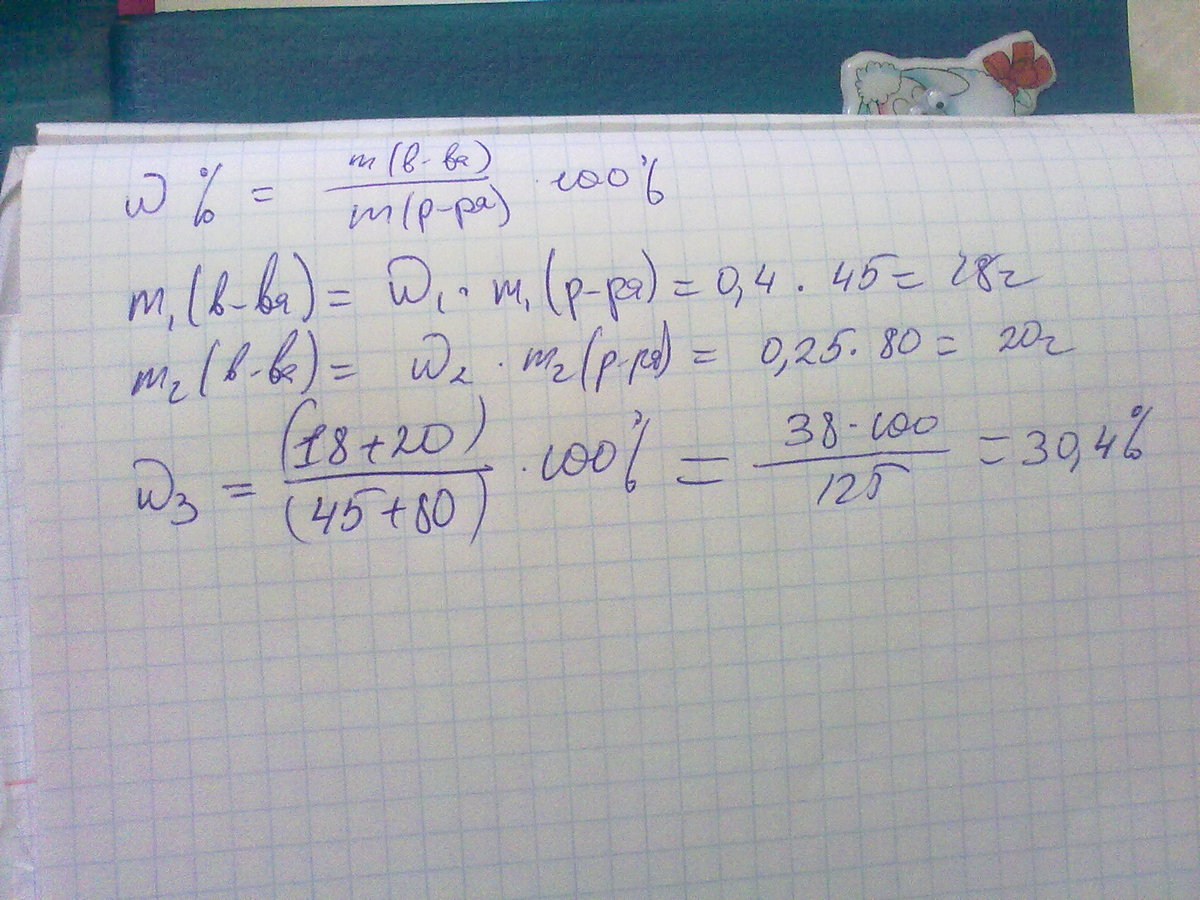 W % = m(в-ва) / m(р-ра) · 100%
m₁(в-ва) = W₁ · m₁(р-ра) = 0,4 · 45 = 18г
m₂(в-ва) = W₂ · m₂(р-ра) = 0,25 · 80 = 20г
W₃ = (18+20) / (45+80) · 100% = 38·100 / 125 = 30,4%